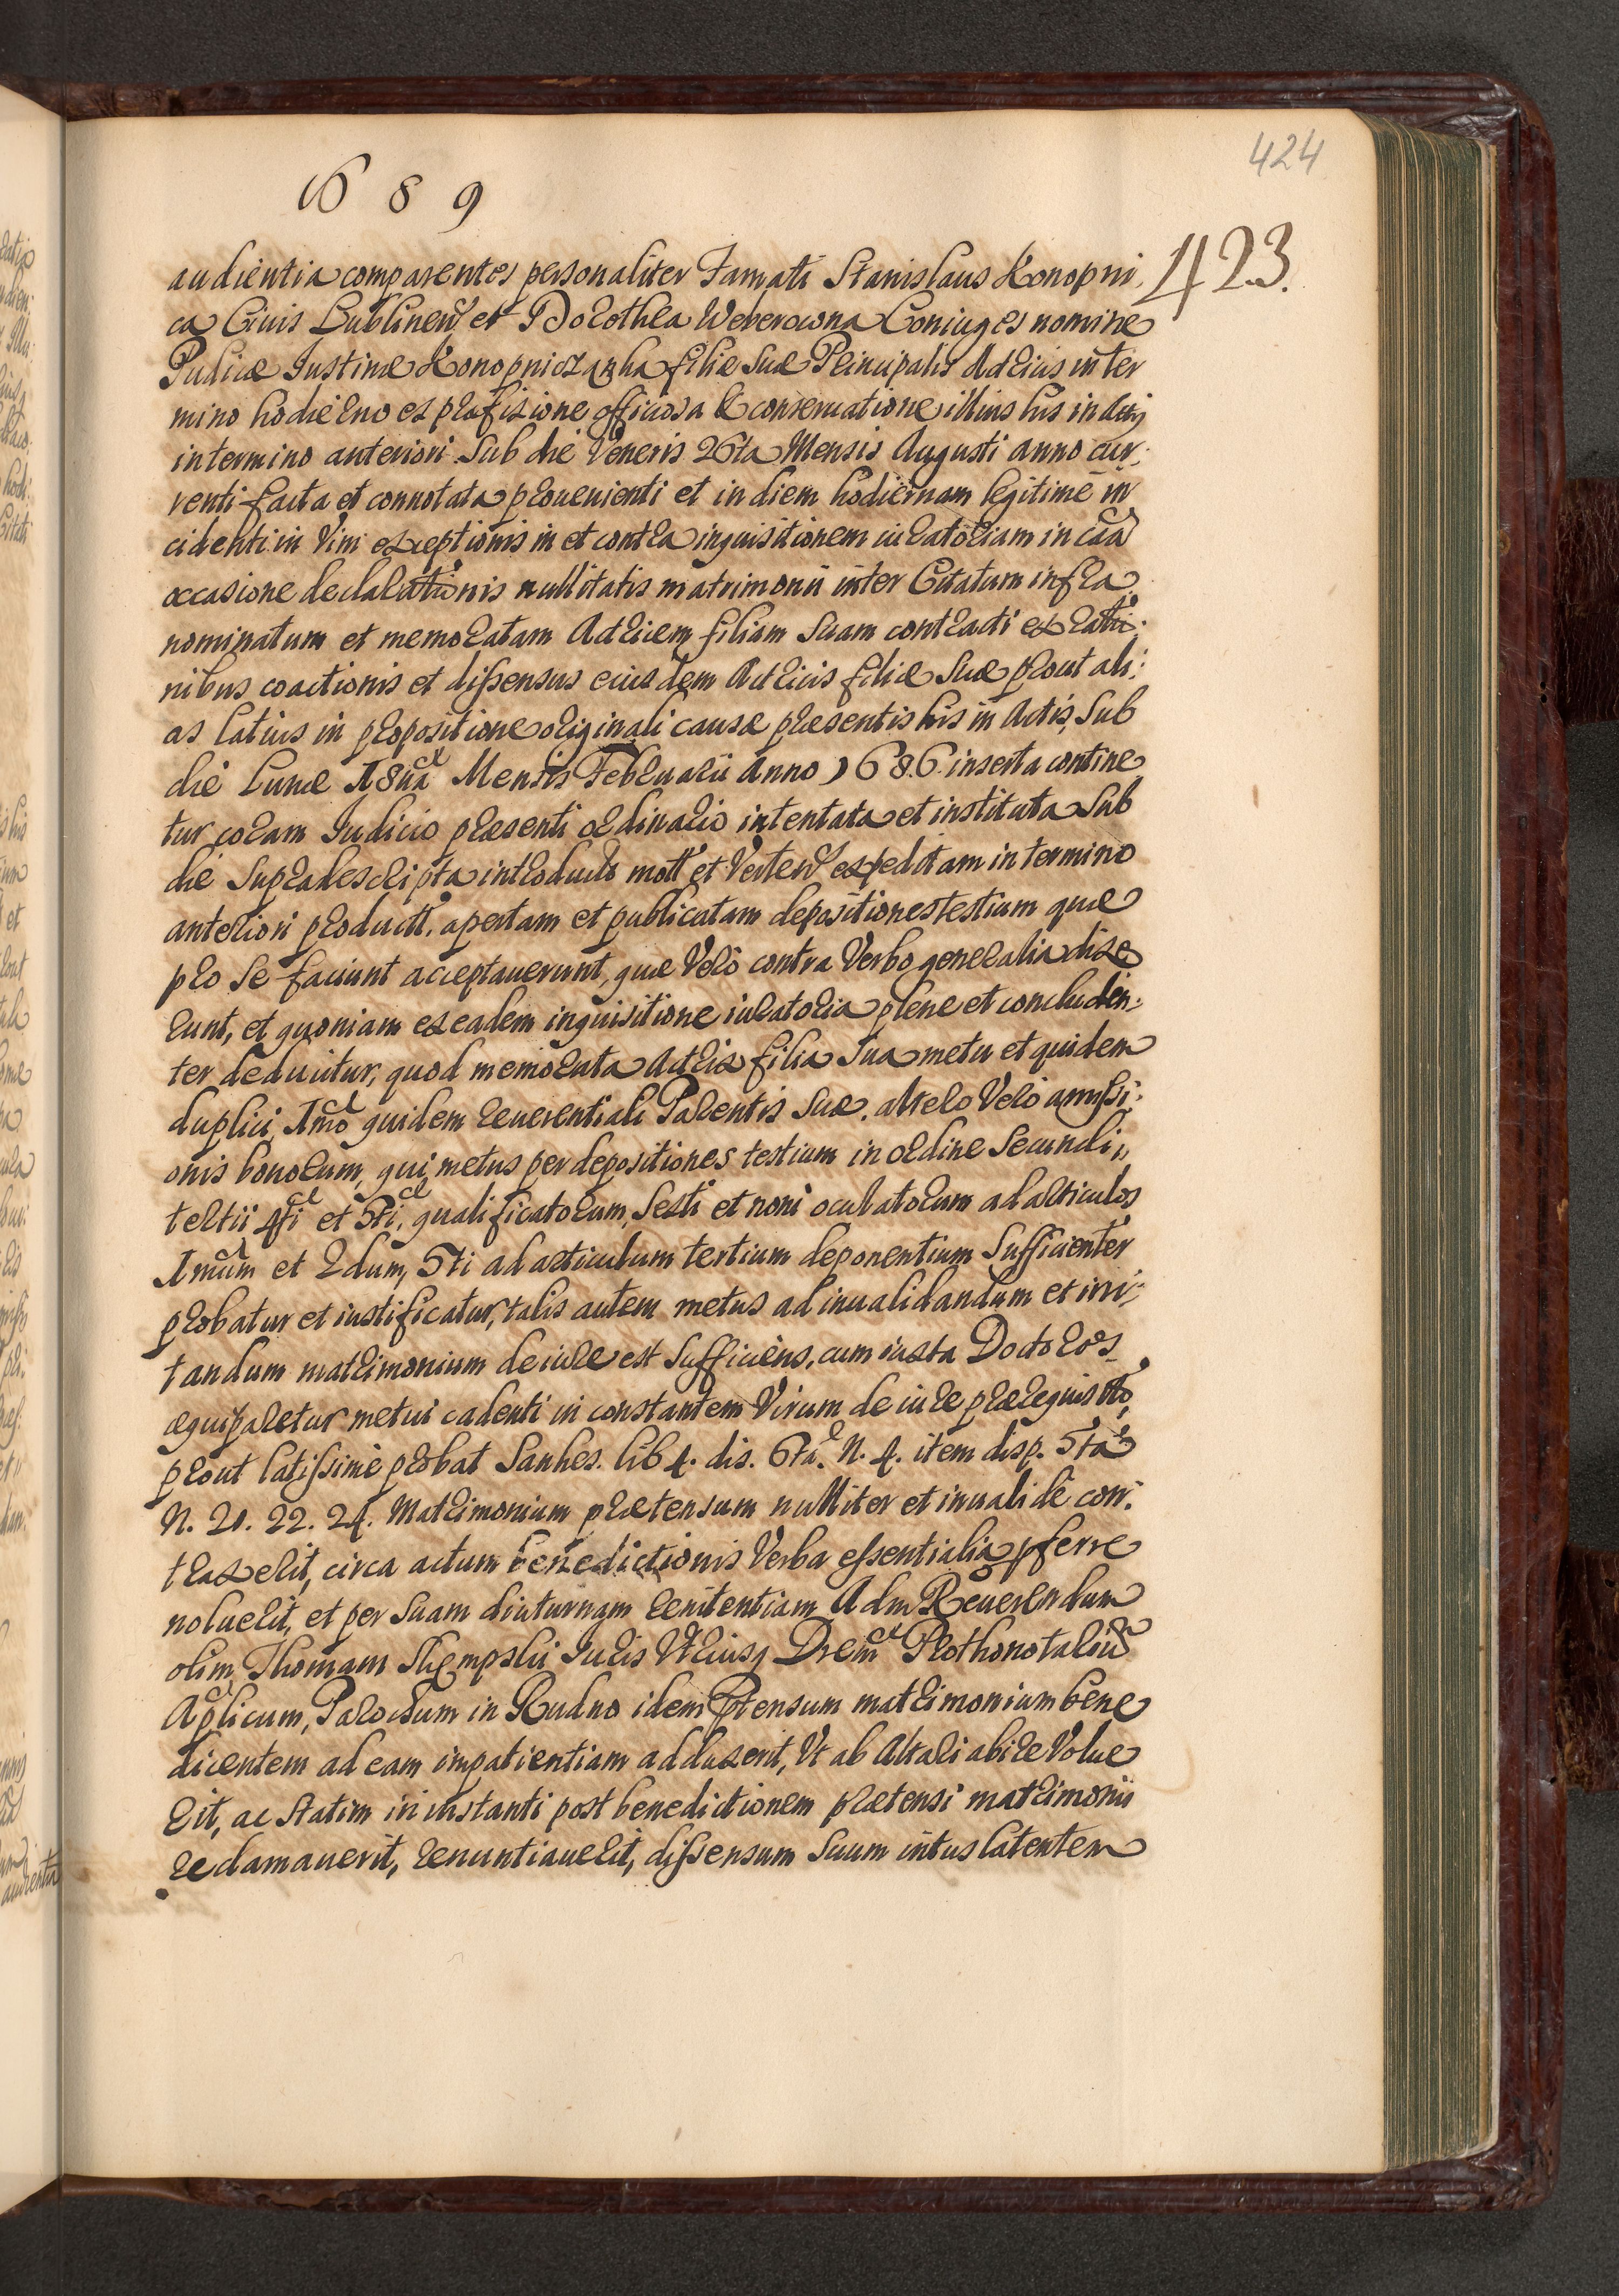 424
1689
423.
audientia comparentes personaliter Famati Stanislaus Konopni,
ca Ciuis Lublinen et Dorothea Weberowna Coniuges nomine
Pudicæ Iustinæ Konopniczanka filiæ suæ Principalis Actricis in ter
mino hodierno ex præfixione officiosa & conseruatione illius his in Actis
in termino anteriori sub die Veneris 26ta Mensis Augusti anno cur:
renti facta et connotata proueniente et in diem hodiernam legitime in
cidenti in Vim exceptionis in et contra inquisitionem iuratoriam in cãa
occasione declarationis nullitatis matrimonii inter Citatum infra
nominatum et memoratam Actricem filiam suam contracti ex ratio:
nibus coactionis et dissensus eiusdem Actricis filiæ suæ prout ali:
as latius in propositione originali causæ præsentis his in Actis, sub
die Lunæ 18ua Mensis Februarii Anno 1686 inserta contine
tur coram Iudicio præsenti ordinario intentata et instituta sub
die supradescripta introducto mott et Verten expeditam in termino
anteriori product. apertam et publicatam depositiones testium quæ
pro se faciunt acceptauerunt, quæ Vero contra Verbo generalia dixe
runt, et quoniam ex eadem inquisitione iuratoria plene et concluden:
ter deducitur, quod memorata Actrix filia sua metu et quidem
duplici, 1mo quidem reuerentiali Parentis suæ, altero Vero amissi:
onis bonorum, qui metus per depositiones testium in ordine secundi,
tertii 4ti et 5ti, qualificatorum, sexti et noni oculatorum ad articulos
1mum et 2dum, 5ti ad articulum tertium deponentium sufficienter
probatur et iustificatur, talis autem metus ad inualidandum et irri:
tandum matrimonium de iure est sufficiens, cum iuxta Doctores
æquiparetur metui cadenti in constantem Virum de iure prærequisito,
prout latissime probat Sanhes. lib 4. dis. 6ta. N. 4. item disp. 5ta
N. 21. 22. 24. Matrimonium prætensum nulliter et inualide con:
traxerit, circa actum benedictionis Verba essentialia pferre
noluerit, et per suam diuturnam renitentiam Adm Reuerendum
olim Thomam Skempskii Iuris Vtriusq Drem Prothonotariu
Aplicum, Parochum in Rudno idem ptensum matrimonium bene
dicentem ad eam impatientiam adduxerit, Vt ab Altari abire Volue
rit, ac statim in instanti post benedictionem prætensi matrimonii
reclamauerit, renuntiauerit, dissensum suum intus latentem